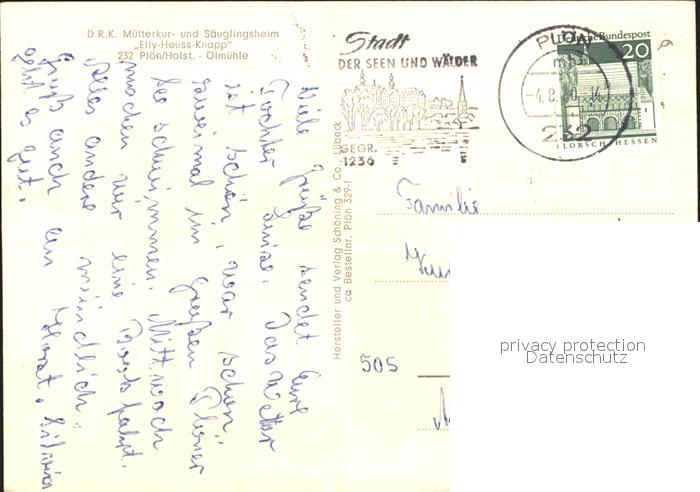 D.R.K. Mütterkur- und Säuglingsheim
„Elly-Heuss-Knapp"
232 Plön/Holst. - Ölmühle
Stadt
DER SEEN UND WÄLDER
GEGR.
1236
PLÖN
mb
-4.8. 14
232
Deutsche Bundespost
20
LORSCH HESSEN
Viele Grüße sendet Eure
Tochter Luise. Das Wetter
ist schön, war schon
zweimal im großen Plöner
See schwimmen. Mittwoch
machen wir eine Bootsfahrt.
Alles andere mündlich.
Gruß auch an Horst.
geht es gut.
Hersteller und Verlag Schöning & Co., Lübeck
ca Bestellnr. Plön 329
Familie
505
privacy protection
Datenschutz